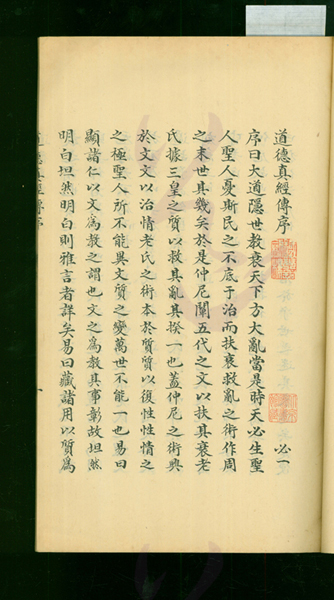 道德真經傳序 必一
序曰大道隱世教衰天下方大亂當是時天必生聖
人聖人憂斯民之不底于治而扶衰救亂之術作周
之末世其幾矣於是仲尼闡五代之文以扶其衰老
氏據三皇之質以救其亂其揆一也蓋仲尼之術興
於文文以治情老氏之術本於質質以復性性情之
之極聖人所不能異文質之變萬世不能一也易曰
顯諸仁以文爲教之謂也文之爲教其事彰故坦然
明白坦然明白則雅言者詳矣易曰藏諸用以質爲
道德真經傳序 一